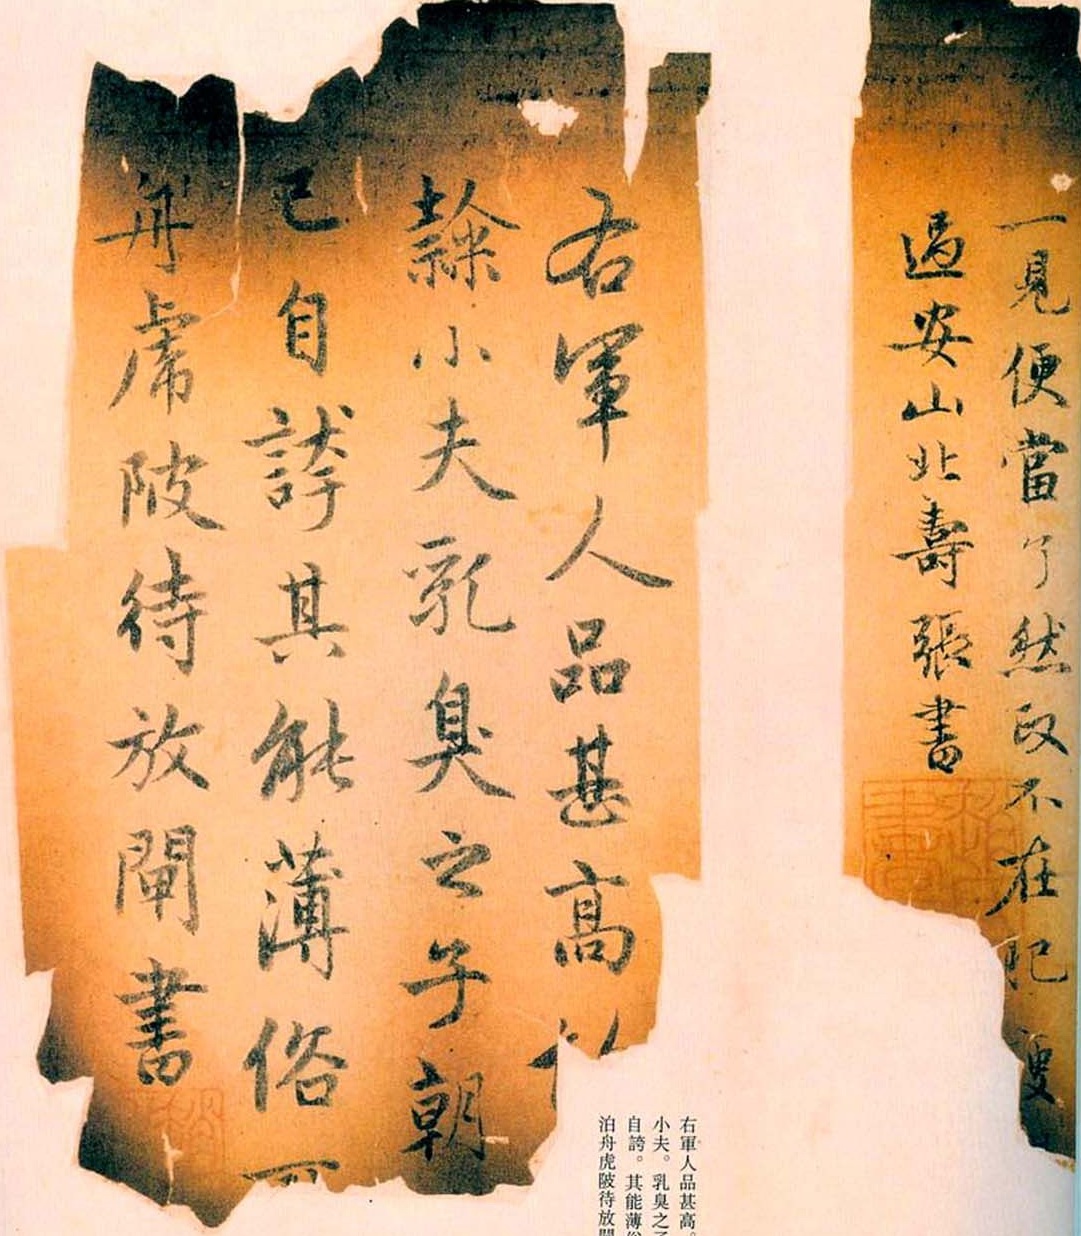 一見便當了然政不在
過安山北壽張書
右軍人品甚高
隸小夫乳臭之子朝
已自誇其能薄俗
舟虎陂待放閘書
右軍人品甚高。
小夫。乳臭之子
自誇。其能薄俗
泊舟虎陂待放閘